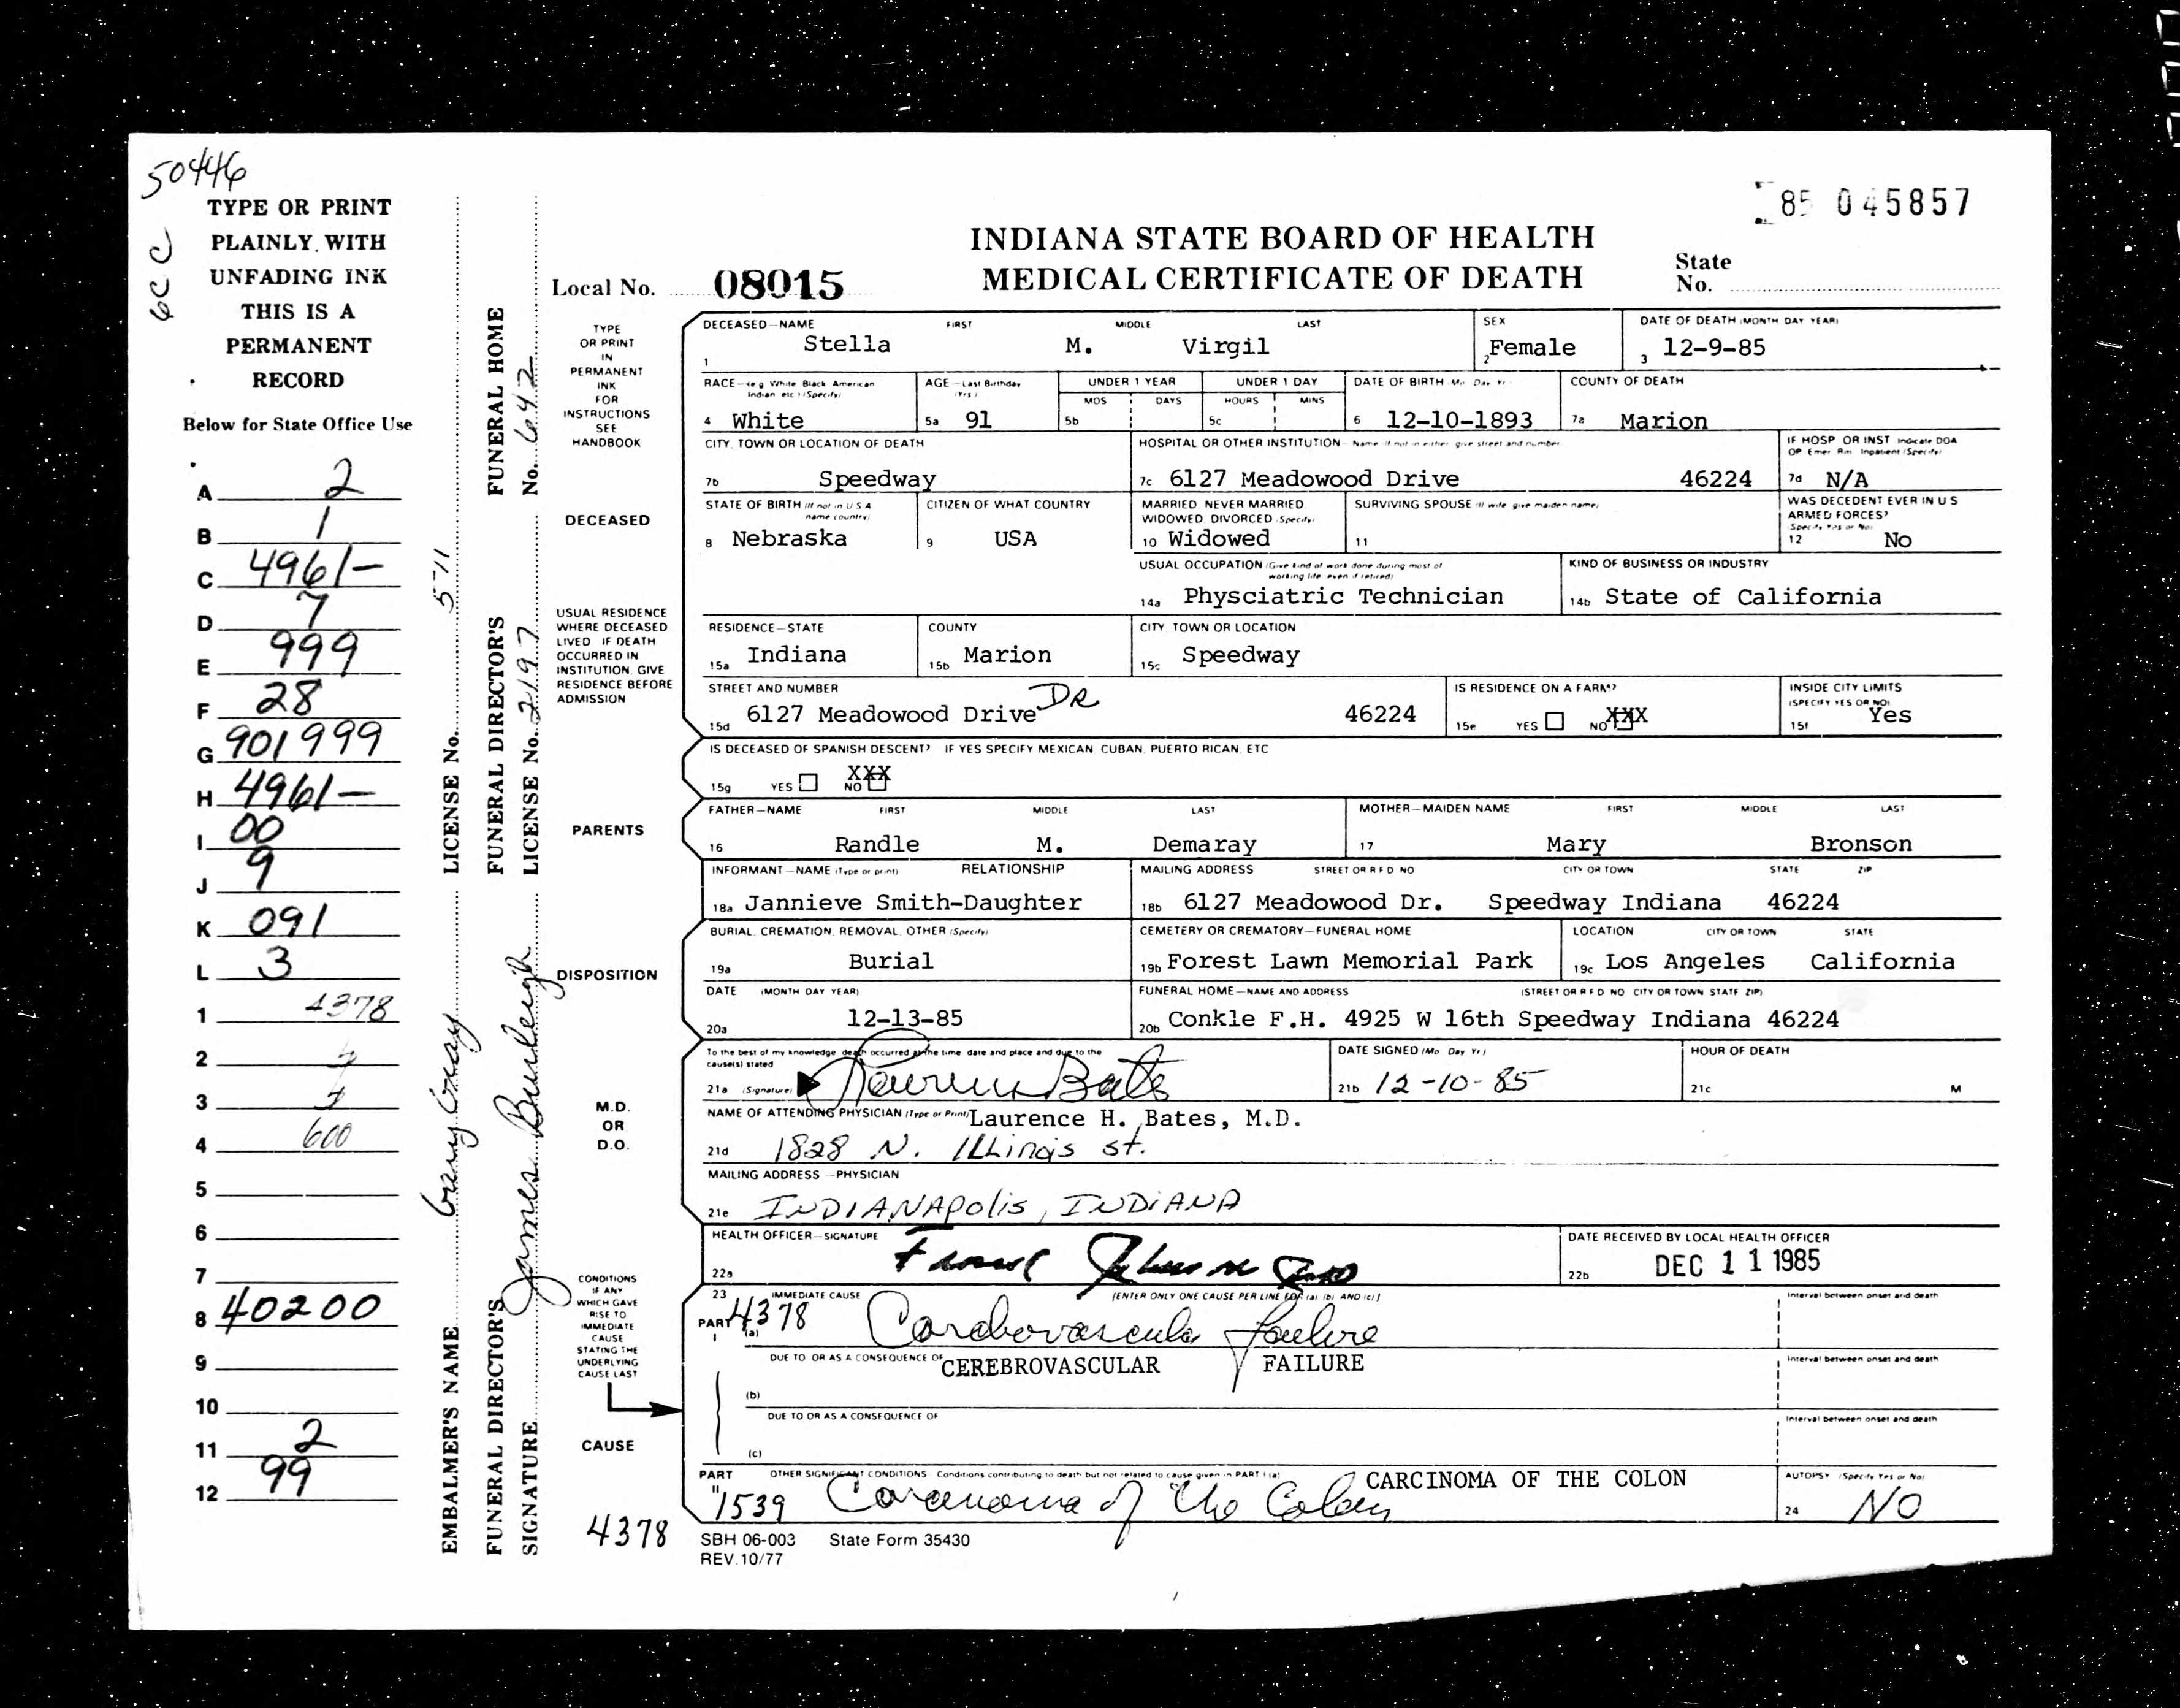 50446
6CC
TYPE OR PRINT
PLAINLY WITH
UNFADING INK
THIS IS A
PERMANENT
RECORD
Below for State Office Use
A 2
B 1
C 4961-
D 7
E 999
F 28
G 901999
H 4961-
I 00
J 9
K 091
L 3
1 4378
2
3
4 600
5
6
7
8 40200
9
10
11 2
12 99
EMBALMER'S NAME Gary Gray LICENSE No. 5711
FUNERAL DIRECTOR'S SIGNATURE James Burleigh
FUNERAL DIRECTOR'S LICENSE No. 2197
FUNERAL HOME No. 6492
85 045857
INDIANA STATE BOARD OF HEALTH
MEDICAL CERTIFICATE OF DEATH
State No.
Local No. 08015
TYPE OR PRINT IN PERMANENT INK FOR INSTRUCTIONS SEE HANDBOOK
DECEASED—NAME FIRST MIDDLE LAST
1 Stella M. Virgil
SEX
2 Female
DATE OF DEATH (MONTH DAY YEAR)
3 12-9-85
RACE—(e g White Black American Indian etc) (Specify)
4 White
AGE—Last Birthday (Yrs)
5a 91
UNDER 1 YEAR
MOS DAYS
5b
UNDER 1 DAY
HOURS MINS
5c
DATE OF BIRTH (Mo Day Yr)
6 12-10-1893
COUNTY OF DEATH
7a Marion
DECEASED
CITY, TOWN OR LOCATION OF DEATH
7b Speedway
HOSPITAL OR OTHER INSTITUTION—Name (If not in either give street and number)
7c 6127 Meadowood Drive 46224
IF HOSP OR INST Indicate DOA OP Emer Rm Inpatient (Specify)
7d N/A
STATE OF BIRTH (If not in U S A name country)
8 Nebraska
CITIZEN OF WHAT COUNTRY
9 USA
MARRIED NEVER MARRIED WIDOWED, DIVORCED (Specify)
10 Widowed
SURVIVING SPOUSE (If wife give maiden name)
11
WAS DECEDENT EVER IN U S ARMED FORCES? (Specify Yes or No)
12 No
USUAL OCCUPATION (Give kind of work done during most of working life even if retired)
14a Physciatric Technician
KIND OF BUSINESS OR INDUSTRY
14b State of California
USUAL RESIDENCE WHERE DECEASED LIVED IF DEATH OCCURRED IN INSTITUTION, GIVE RESIDENCE BEFORE ADMISSION
RESIDENCE—STATE
15a Indiana
COUNTY
15b Marion
CITY TOWN OR LOCATION
15c Speedway
STREET AND NUMBER
15d 6127 Meadowood Drive DR 46224
IS RESIDENCE ON A FARM?
15e YES NO XXX
INSIDE CITY LIMITS (SPECIFY YES OR NO)
15f Yes
IS DECEASED OF SPANISH DESCENT? IF YES SPECIFY MEXICAN CUBAN, PUERTO RICAN, ETC
15g YES NO XXX
PARENTS
FATHER—NAME FIRST MIDDLE LAST
16 Randle M. Demaray
MOTHER—MAIDEN NAME FIRST MIDDLE LAST
17 Mary Bronson
INFORMANT—NAME (Type or print) RELATIONSHIP
18a Jannieve Smith-Daughter
MAILING ADDRESS STREET OR R F D NO CITY OR TOWN STATE ZIP
18b 6127 Meadowood Dr. Speedway Indiana 46224
DISPOSITION
BURIAL, CREMATION, REMOVAL, OTHER (Specify)
19a Burial
CEMETERY OR CREMATORY—FUNERAL HOME
19b Forest Lawn Memorial Park
LOCATION CITY OR TOWN STATE
19c Los Angeles California
DATE (MONTH DAY YEAR)
20a 12-13-85
FUNERAL HOME—NAME AND ADDRESS (STREET OR R F D NO CITY OR TOWN STATE ZIP)
20b Conkle F.H. 4925 W 16th Speedway Indiana 46224
M.D. OR D.O.
To the best of my knowledge death occurred at the time date and place and due to the cause(s) stated
21a (Signature) Laurence Bates
DATE SIGNED (Mo Day Yr)
21b 12-10-85
HOUR OF DEATH
21c M
NAME OF ATTENDING PHYSICIAN (Type or Print) Laurence H. Bates, M.D.
21d 1828 N. ILLinois st.
MAILING ADDRESS—PHYSICIAN
21e INDIANApolis, INDiANA
HEALTH OFFICER—SIGNATURE
22a
DATE RECEIVED BY LOCAL HEALTH OFFICER
22b DEC 11 1985
CONDITIONS IF ANY WHICH GAVE RISE TO IMMEDIATE CAUSE STATING THE UNDERLYING CAUSE LAST
CAUSE
23 IMMEDIATE CAUSE [ENTER ONLY ONE CAUSE PER LINE FOR (a) (b) AND (c)] Interval between onset and death
PART I 4378
(a) Cerebrovascular failure
DUE TO OR AS A CONSEQUENCE OF CEREBROVASCULAR FAILURE Interval between onset and death
(b)
DUE TO OR AS A CONSEQUENCE OF Interval between onset and death
(c)
PART II OTHER SIGNIFICANT CONDITIONS Conditions contributing to death but not related to cause given in PART I (a) CARCINOMA OF THE COLON
1539 Carcinoma of the Colon
AUTOPSY (Specify Yes or No)
24 NO
4378
SBH 06-003 State Form 35430
REV.10/77